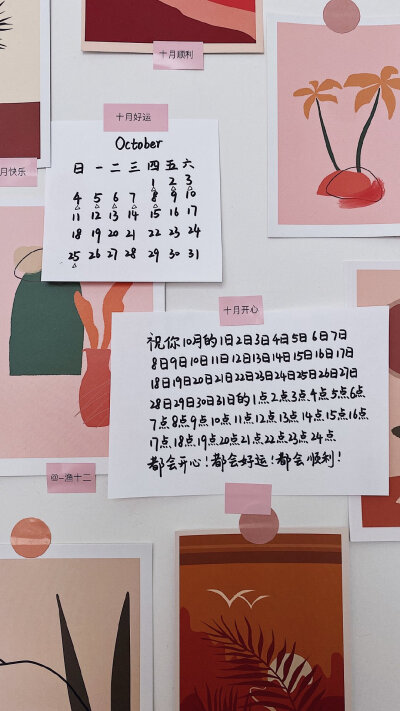 十月顺利
十月好运
October
日 一 二 三 四 五 六
1 2 3
4 5 6 7 8 9 10
11 12 13 14 15 16 17
18 19 20 21 22 23 24
25 26 27 28 29 30 31
月快乐
十月开心
祝你10月的1日2日3日4日5日6日7日
8日9日10日11日12日13日14日15日16日17日
18日19日20日21日22日23日24日25日26日27日
28日29日30日31日的1点2点3点4点5点6点
7点8点9点10点11点12点13点14点15点16点
17点18点19点20点21点22点23点24点
都会开心!都会好运!都会顺利!
@-渔十二